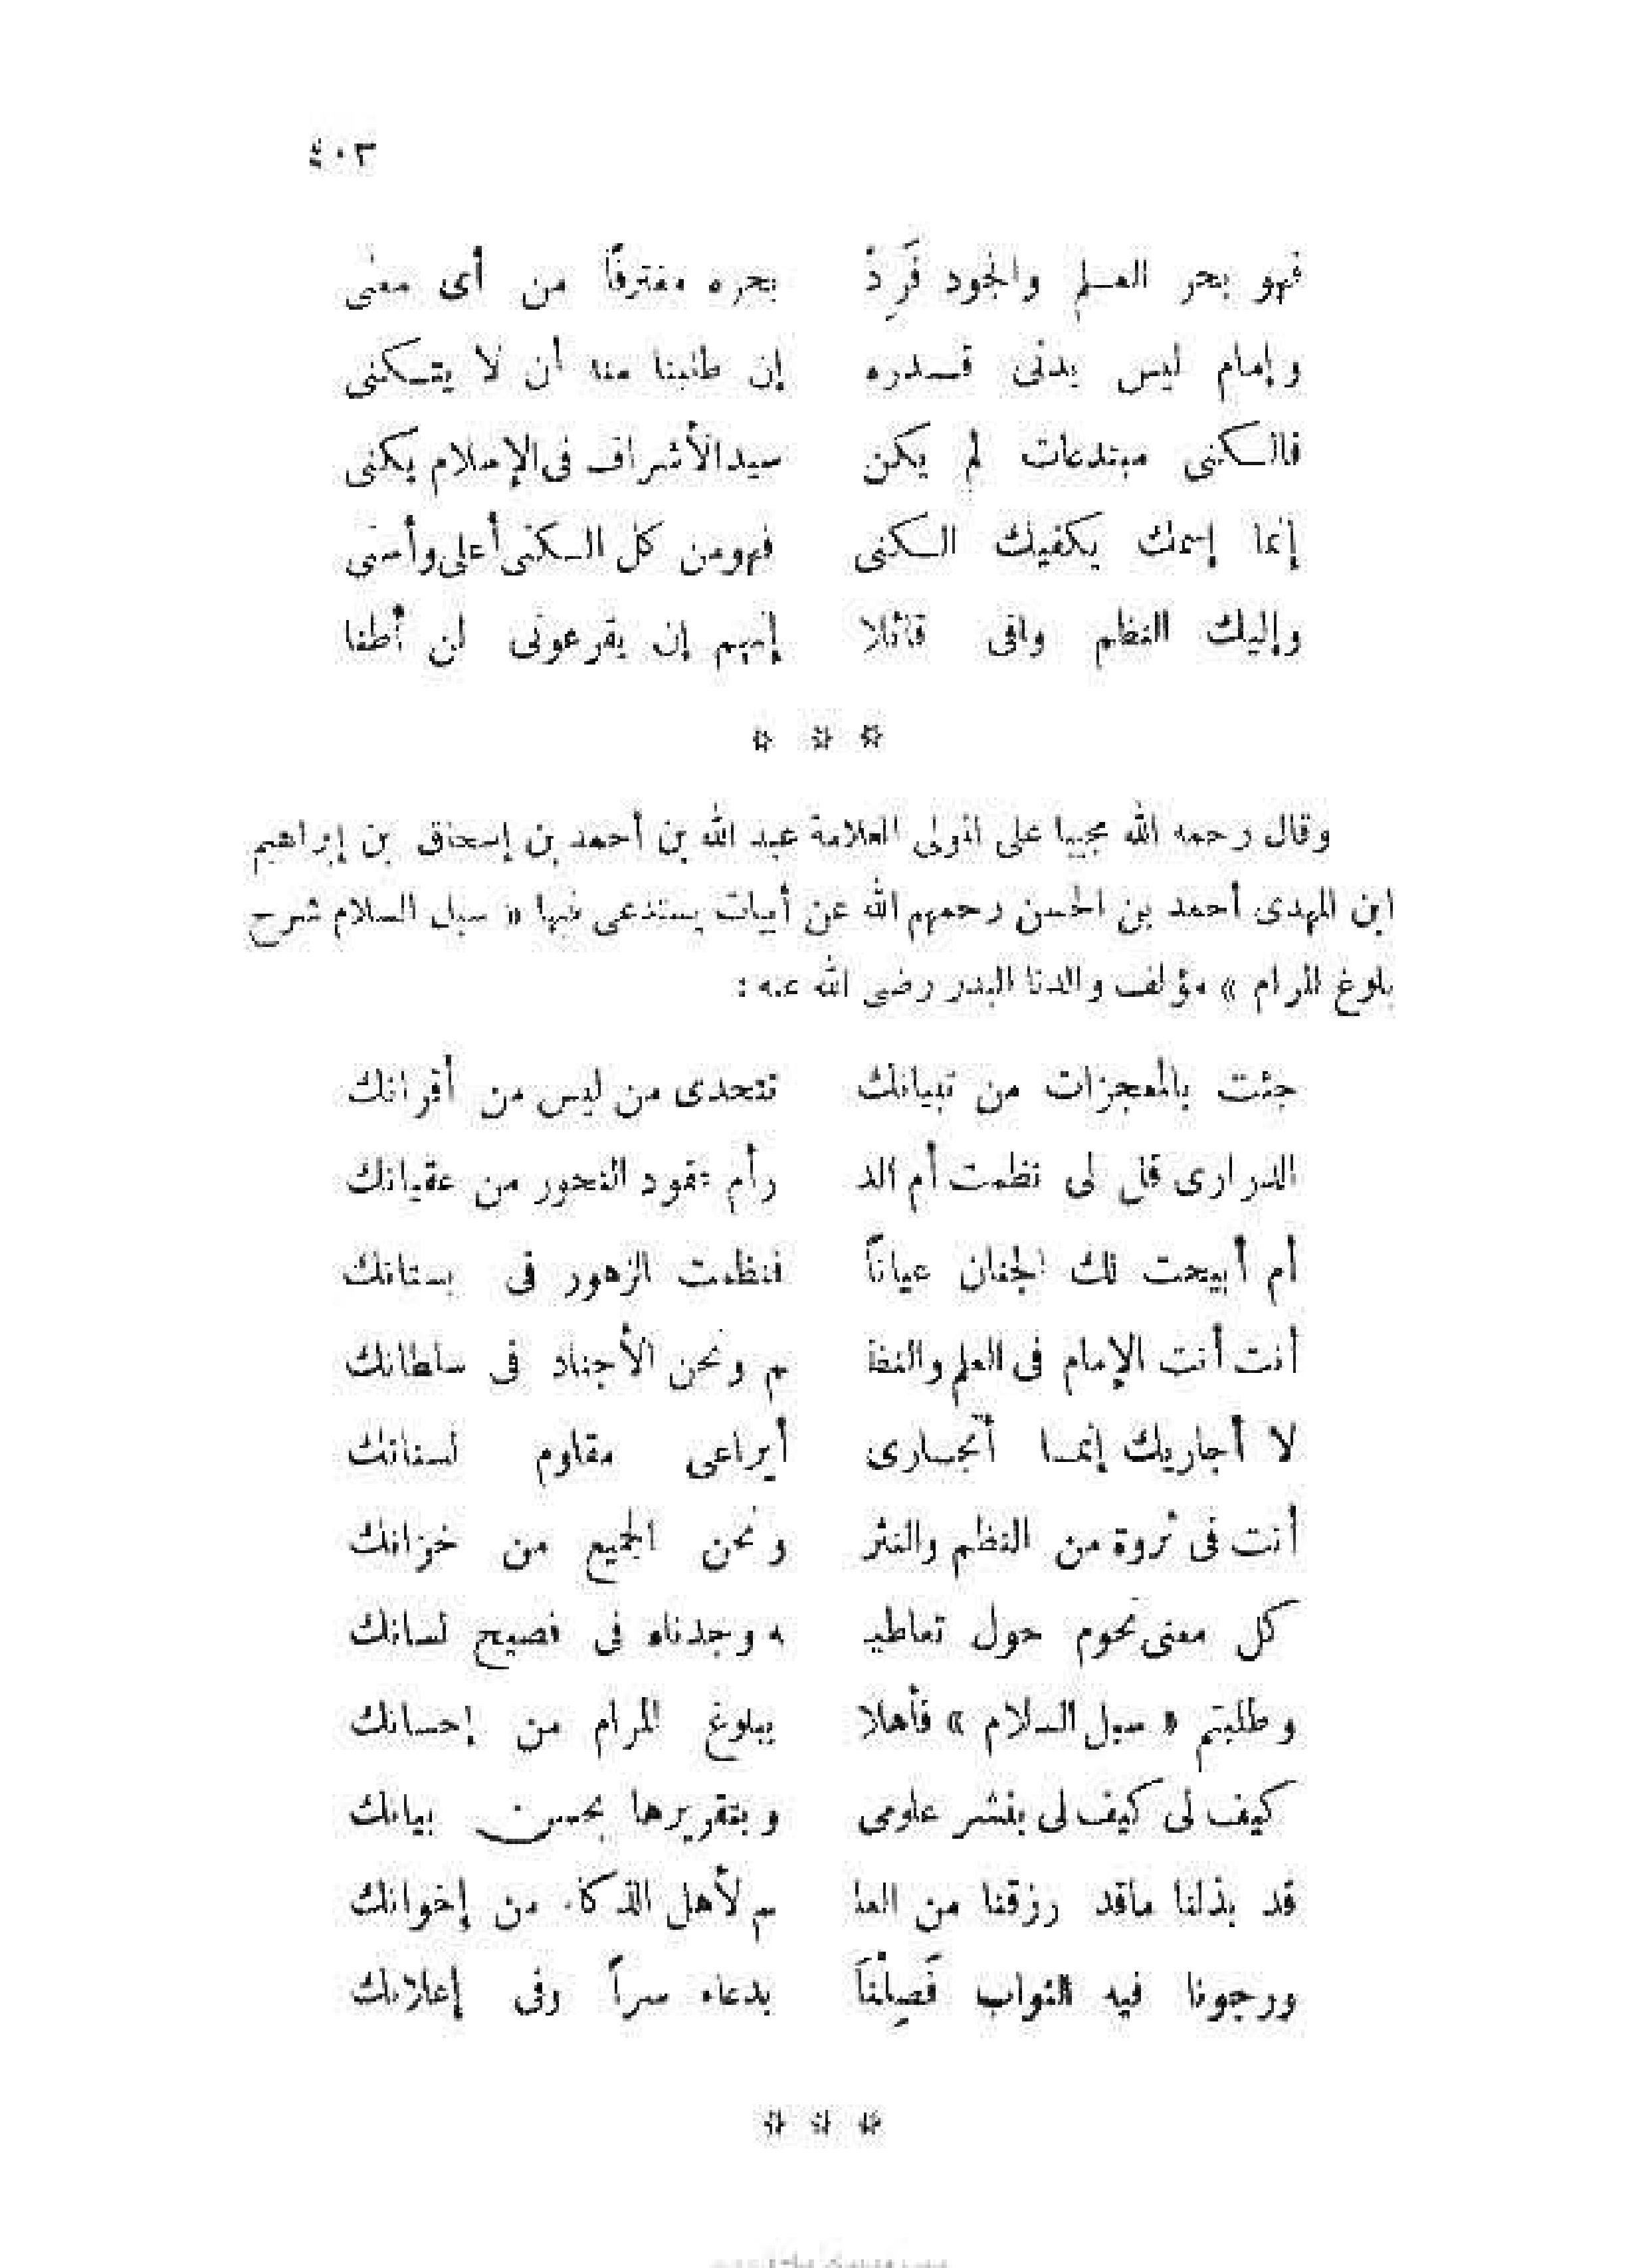 ٤٠٣
فهو بحر العلم والجود فَرِدْ بحره مغترفًا من أى معنى
وإمام ليس يدنى قدره إن طلبنا منه أن لا يتكنى
فالكنى مبتدعات لم يكن سيد الأشراف فى الإسلام يكنى
إنما إسمك يكفيك الكنى فهو من كل الكنى أعلى وأسنى
وإليك النظم وافى قائلا إنهم إن يقرعونى لن أطنا
* * *
وقال رحمه الله مجيبا على المولى العلامة عبد الله بن أحمد بن إسحاق بن إبراهيم
ابن المهدى أحمد بن الحسن رحمهم الله عن أبيات يستدعى فيها « سبل السلام شرح
بلوغ المرام » مؤلف والدنا البدر رضى الله عنه :
جئت بالمعجزات من تبيانك تتحدى من ليس من أقرانك
الدرارى قل لى نظمت أم الد رأم عقود النحور من عقيانك
أم أبيحت لك الجنان عياناً فنظمت الزهور فى بستانك
أنت أنت الإمام فى العلم والنظ م ونحن الأجناد فى سلطانك
لا أجاريك إنما أتجارى أيراعى مقاوم لسنانك
أنت فى ثروة من النظم والنثر ونحن الجميع من خزانك
كل معنى نحوم حول تعاطيـ ه وجدناه فى فصيح لسانك
وطلبتم « سبل السلام » فأهلا ببلوغ المرام من إحسانك
كيف لى كيف لى بنشر علومى وبتقريرها بحسن بيانك
قد بذلنا ماقد رزقنا من العلـ م لأهل الذكاء من إخوانك
ورجونا فيه الثواب فَصِلْنَا بدعاء سراً وفى إعلانك
* * *